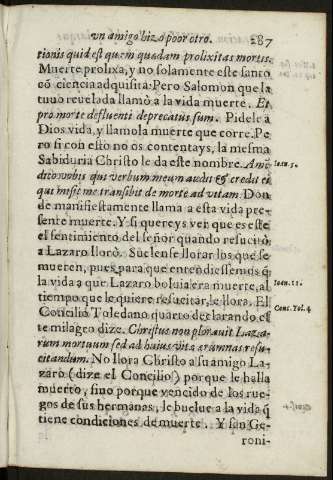 vn amigo hizo poor otro. 287
tionis quid est quem quædam prolixitas mortis.
Muerte prolixa, y no solamente este santo
cō ciencia adquisita: Pero Salomon que la
tuuo reuelada llamò a la vida muerte. Et
pro morte defluenti deprecatus sum. Pidele a
Dios vida, y llamola muerte que corre. Pe
ro si con esto no os contentays, la mesma
Sabiduria Christo le da este nombre. Amē
dico vobis qui verbum meum audit & credit ei
qui misit me transibit de morte ad vitam. Don
de manifiestamente llama a esta vida pre-
sente muerte. Y si quereys ver que es este
el sentimiento del señor quando resucitò
a Lazaro llorò. Suelense llorar los que se
mueren, pues para que entendiessemos q̄
la vida a que Lazaro boluia era muerte, al
tiempo que le quiere resucitar, le llora. El
Concilio Toledano quarto declarando es
te milagro dize. Christus non plorauit Laza-
rum mortuum sed ad huius vitæ ærumnas resu-
citandum. No llora Christo a su amigo La-
zaro (dize el Concilio) porque le halla
muerto, sino porque vencido de los rue-
gos de sus hermanas, le buelue a la vida q̄
tiene condiciones de muerte. Y san Ge-
roni-
Ioan. 5.
Ioan. 11.
Conc. Tol. 4